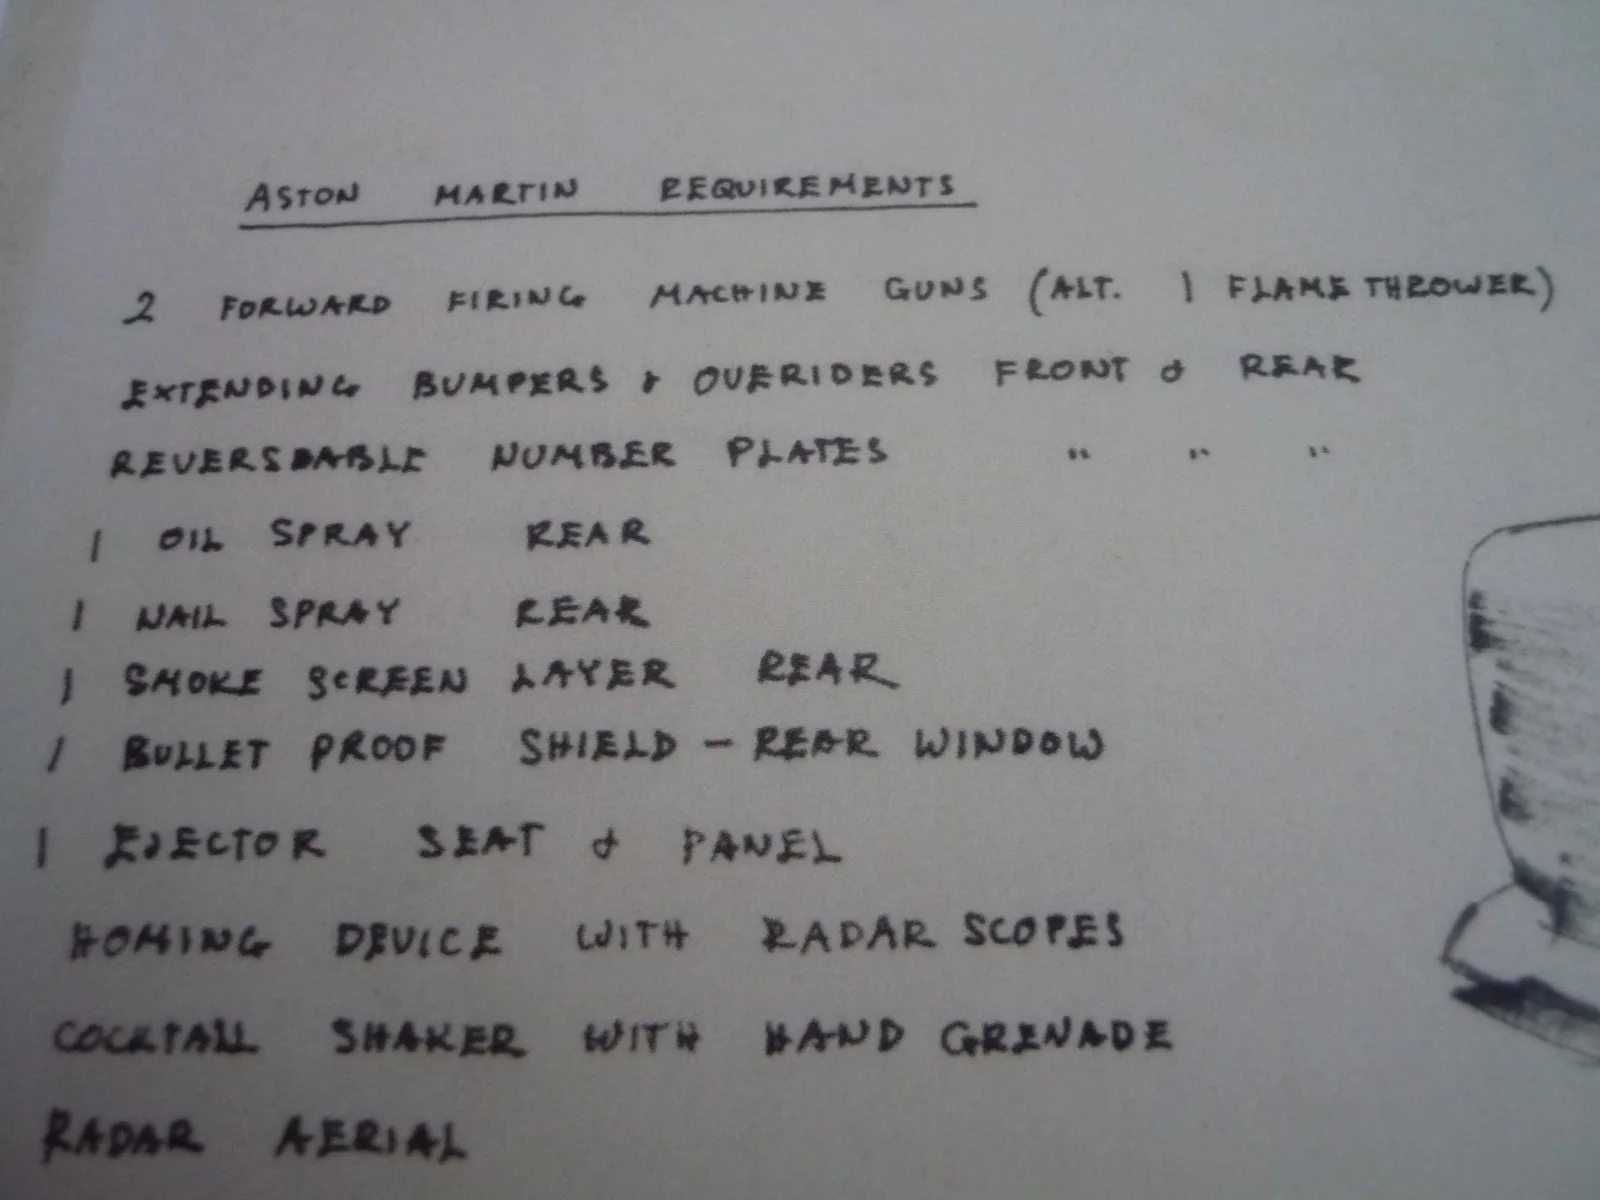 ASTON MARTIN REQUIREMENTS
2 FORWARD FIRING MACHINE GUNS (ALT. 1 FLAME THROWER)
EXTENDING BUMPERS & OVERIDERS FRONT & REAR
REVERSABLE NUMBER PLATES " " "
1 OIL SPRAY REAR
1 NAIL SPRAY REAR
1 SMOKE SCREEN LAYER REAR
1 BULLET PROOF SHIELD - REAR WINDOW
1 EJECTOR SEAT & PANEL
HOMING DEVICE WITH RADAR SCOPES
COCKTAIL SHAKER WITH HAND GRENADE
RADAR AERIAL